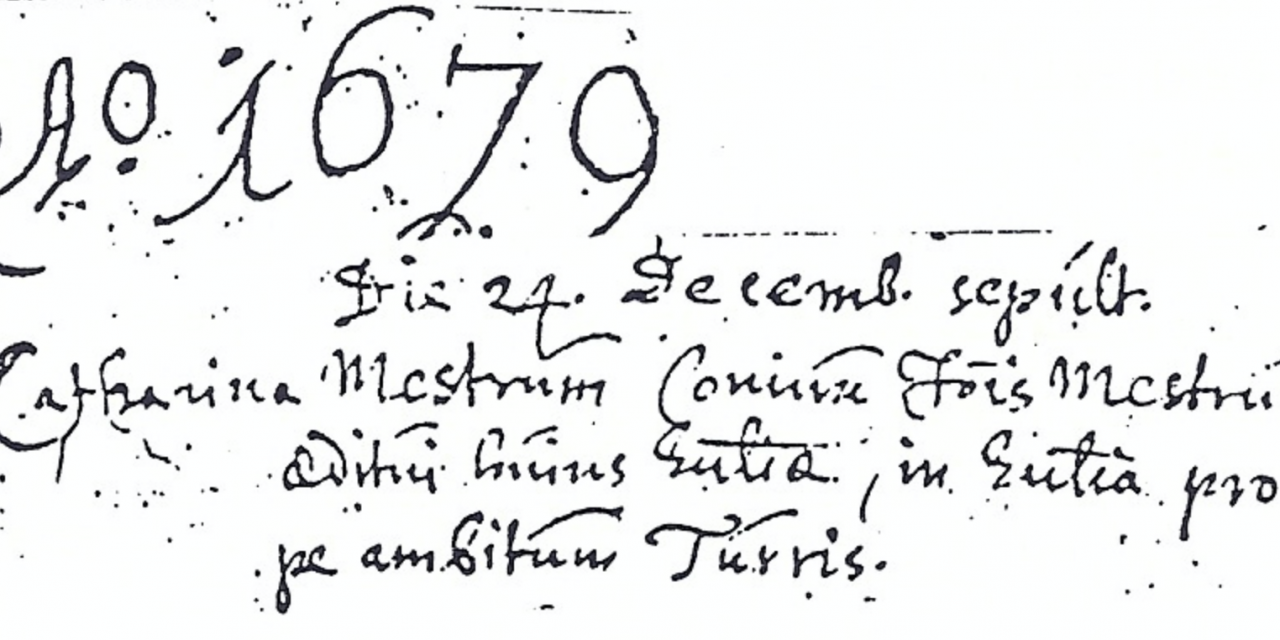 Aº 1679
Die 24. Decemb. sepult.
Catharina Mestrum Coniux Jois Mestrū
æditui huius Eccliæ, in Ecclia pro
pe ambitum Turris.